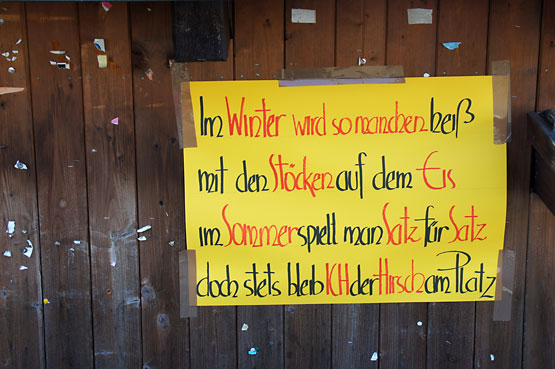 Im Winter wird so manchen heiß
mit den Stöcken auf dem Eis
im Sommer spielt man Satz für Satz
doch stets bleib ICH der Hirsch am Platz